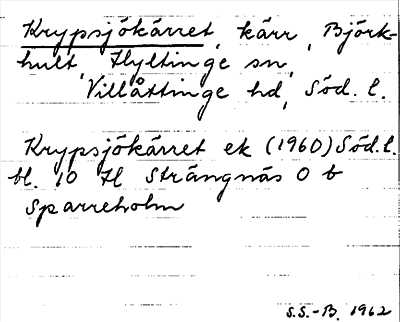 Krypsjökärret, kärr, Björk-
hult, Hyltinge sn,
Villåttinge hd, Söd. l.
Krypsjökärret ek (1960) Söd. l.
bl. 10 H Strängnäs O b
Sparreholm
S.S.-B. 1962